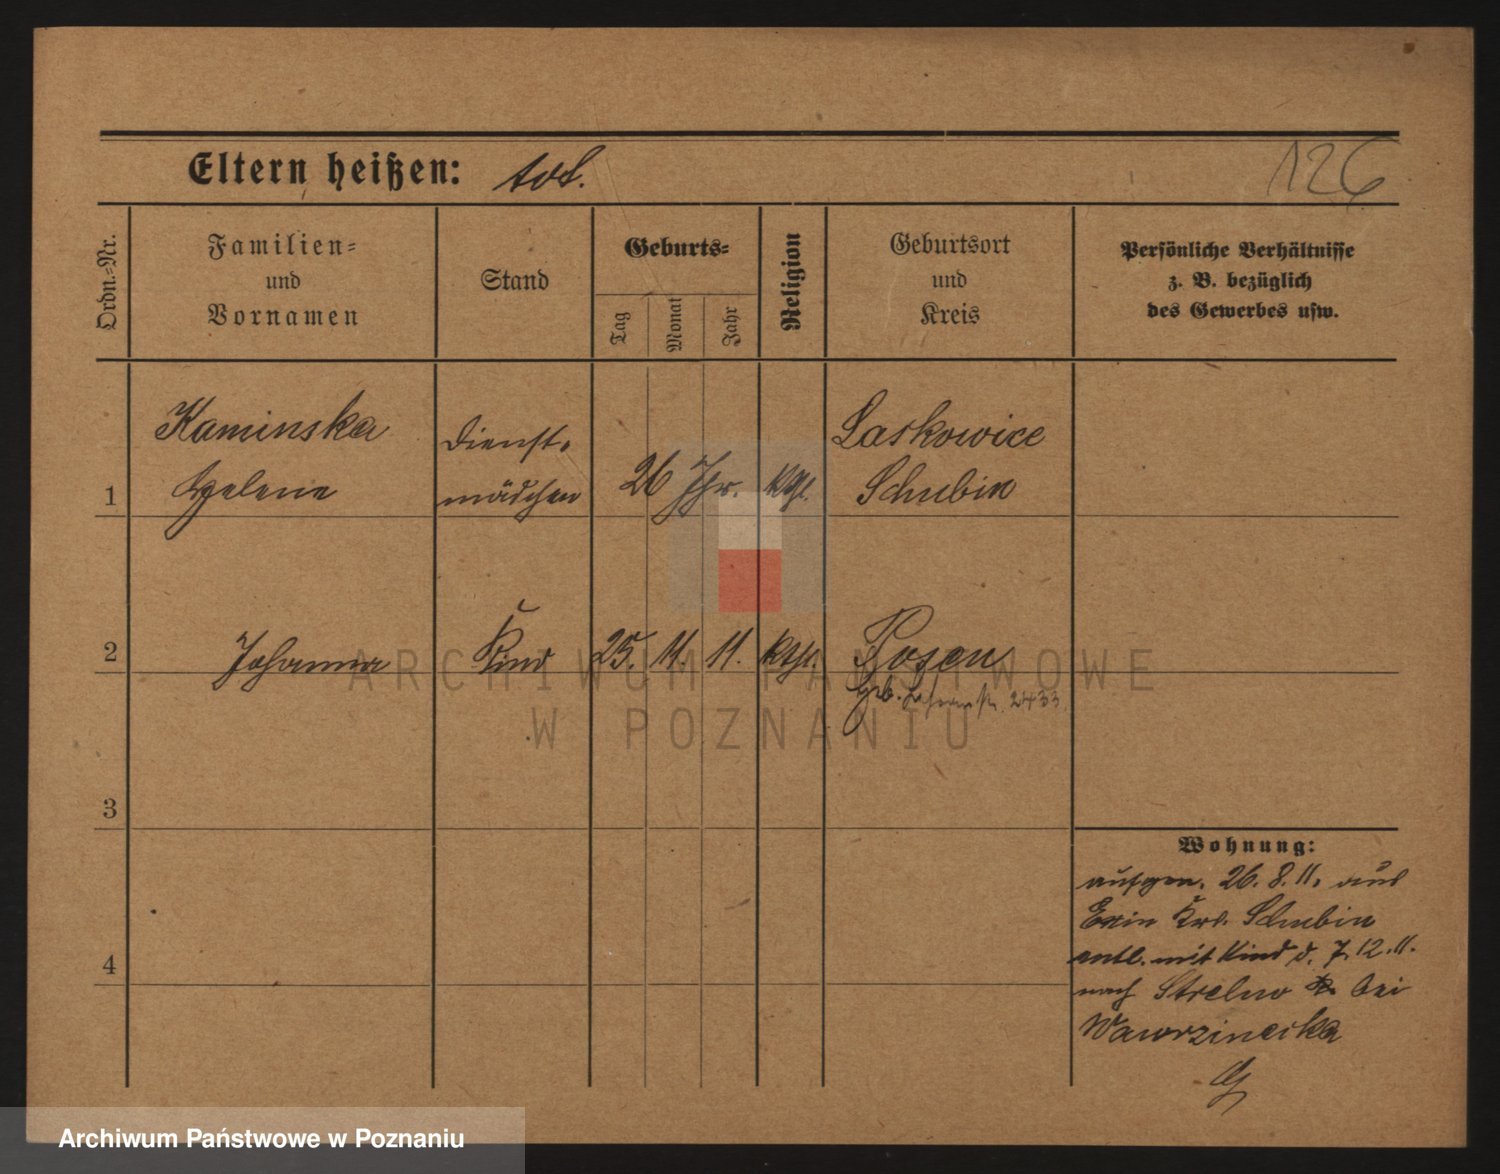 126
Eltern heißen: tot.
Ordn.=Nr.
Familien=
und
Vornamen
Stand
Geburts=
Tag
Monat
Jahr
Religion
Geburtsort
und
Kreis
Persönliche Verhältnisse
z. B. bezüglich
des Gewerbes usw.
1
Kaminska
Helene
Dienst=
mädchen
26 Jhr.
kth.
Laskowice
Schubin
2
Johanna
Kind
25. 11. 11.
kth.
Posen
geb. 2433
3
4
Wohnung:
aufgen. 26. 8. 11. aus
Exin Krs. Schubin
entl. mit Kind d. 7. 12. 11.
nach Strelno bei
Wawrzincika
ARCHIWUM PAŃSTWOWE
W POZNANIU
Archiwum Państwowe w Poznaniu